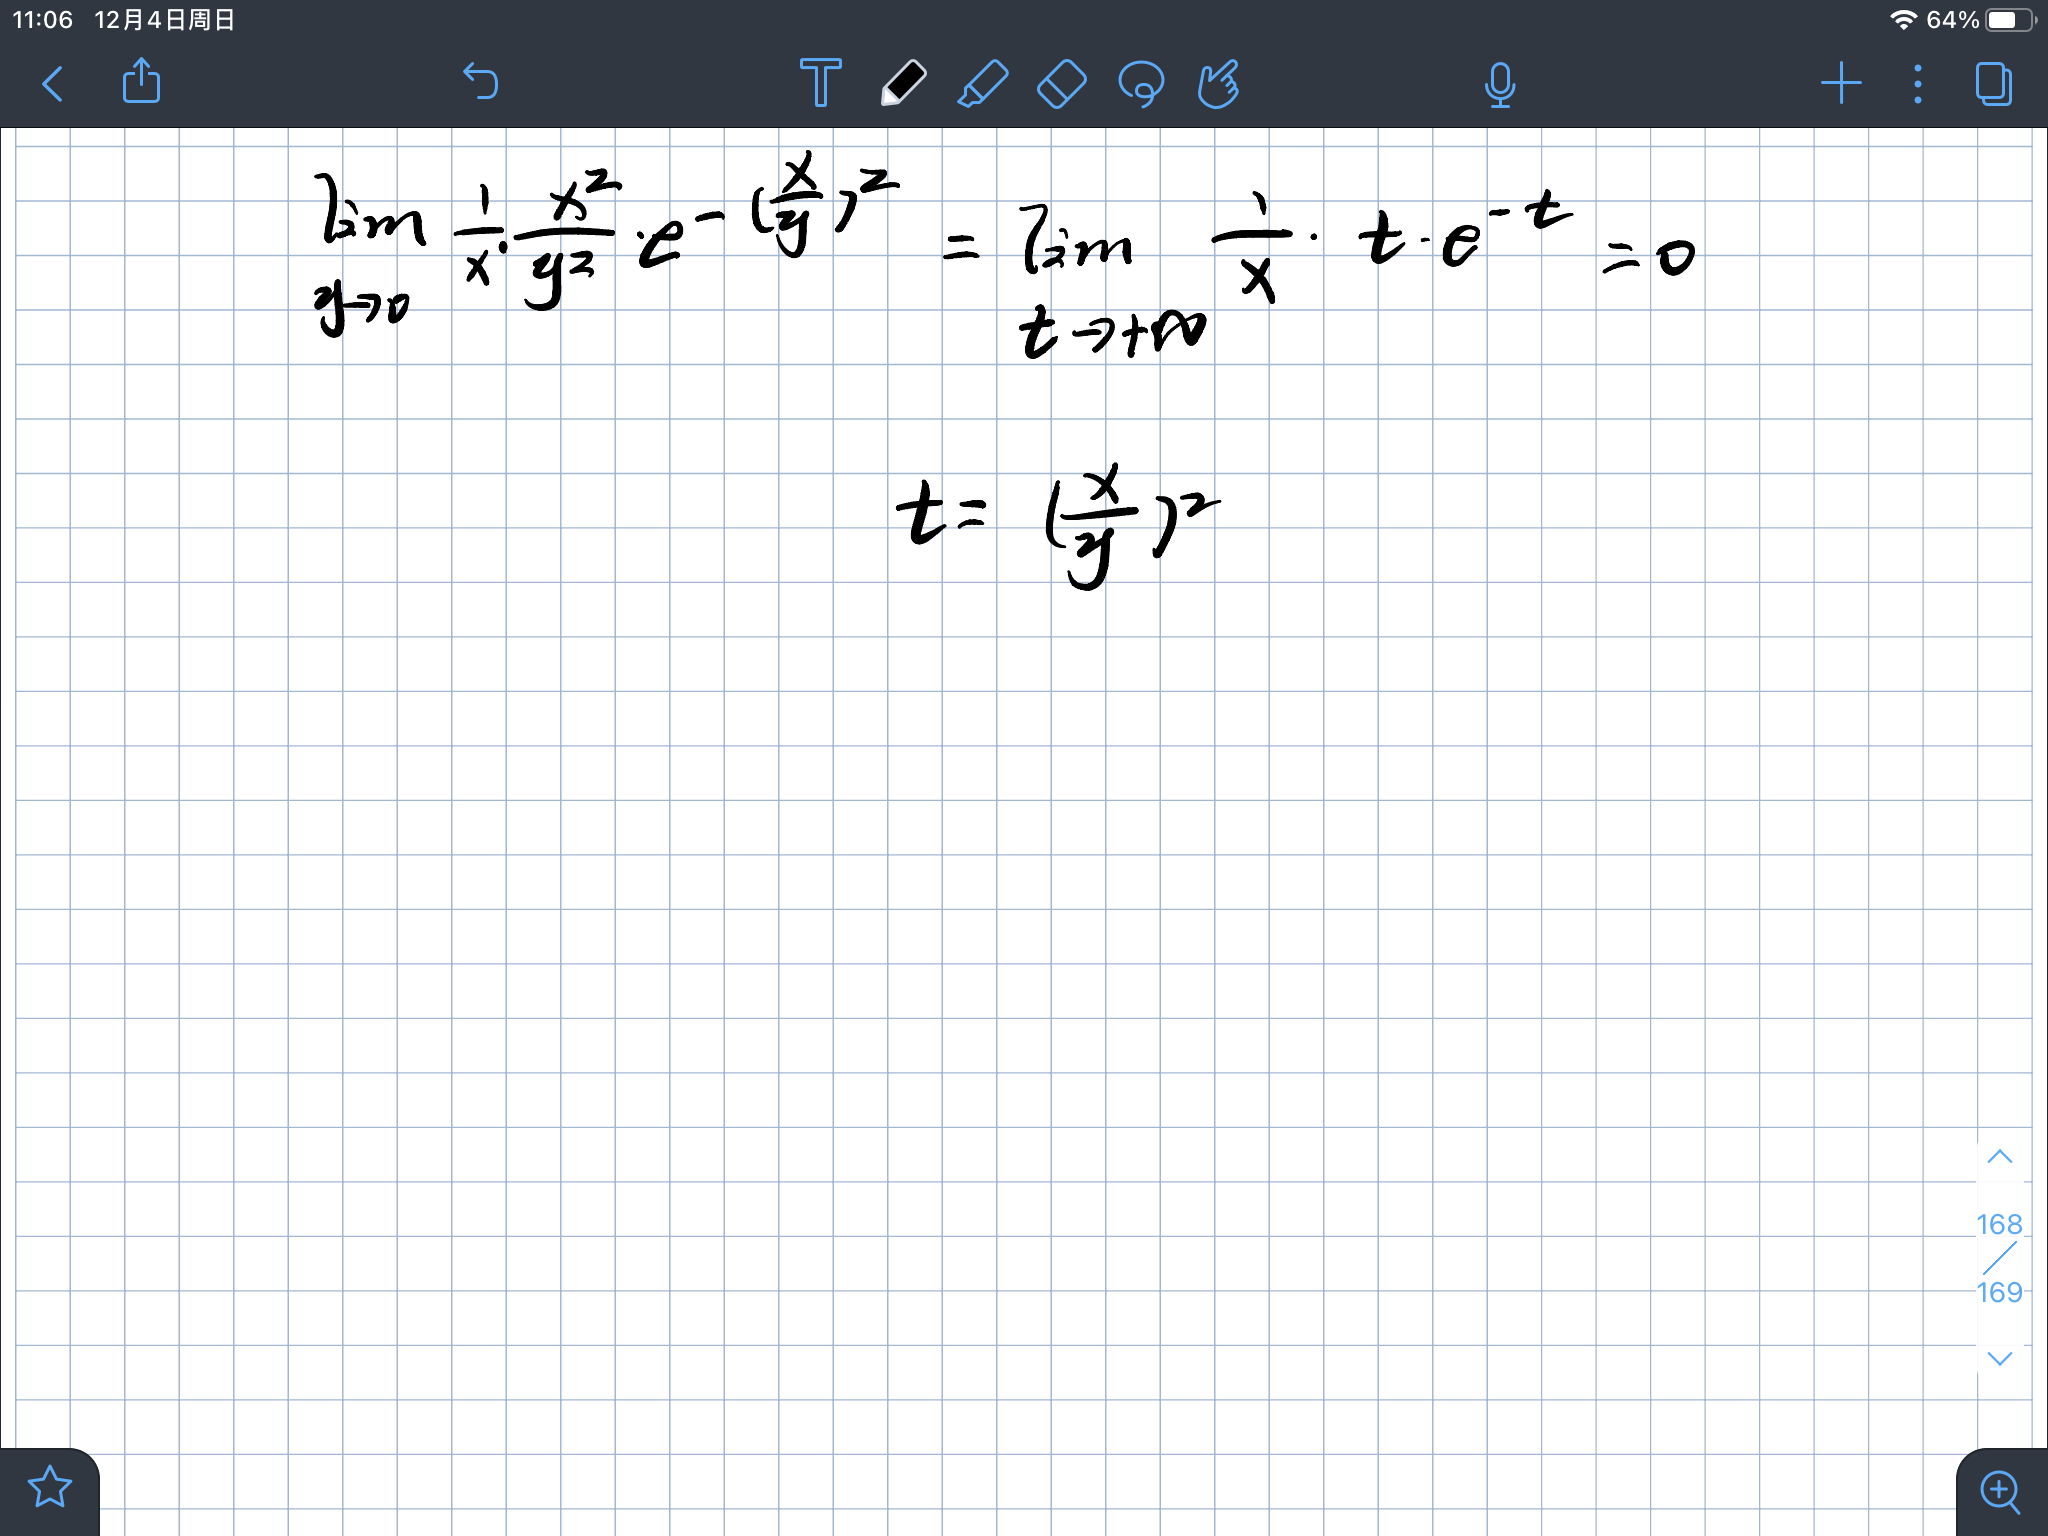 11:06 12月4日周日 64%
T
lim 1/x · x²/y² · e^-(x/y)² = lim 1/x · t · e^-t = 0
y→0 t→+∞
t = (x/y)²
168
169